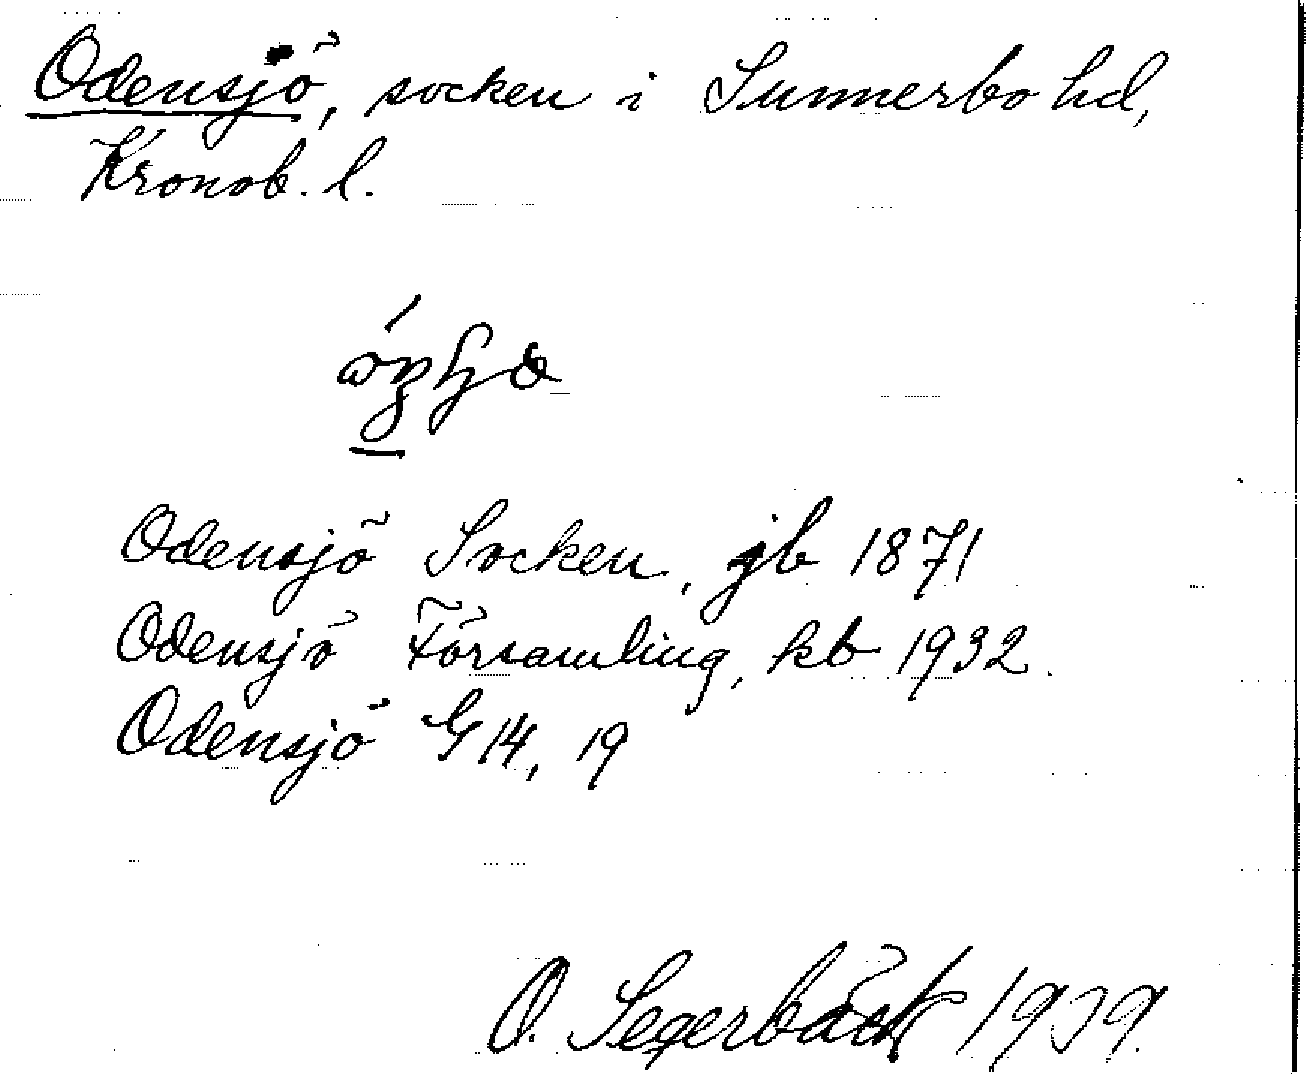 Odensjö, socken i Sunnerbo hd,
Kronob. l.
Odensjö Socken, jb 1871
Odensjö Församling, kb 1932.
Odensjö G14, 19
O. Segerbäck 1939